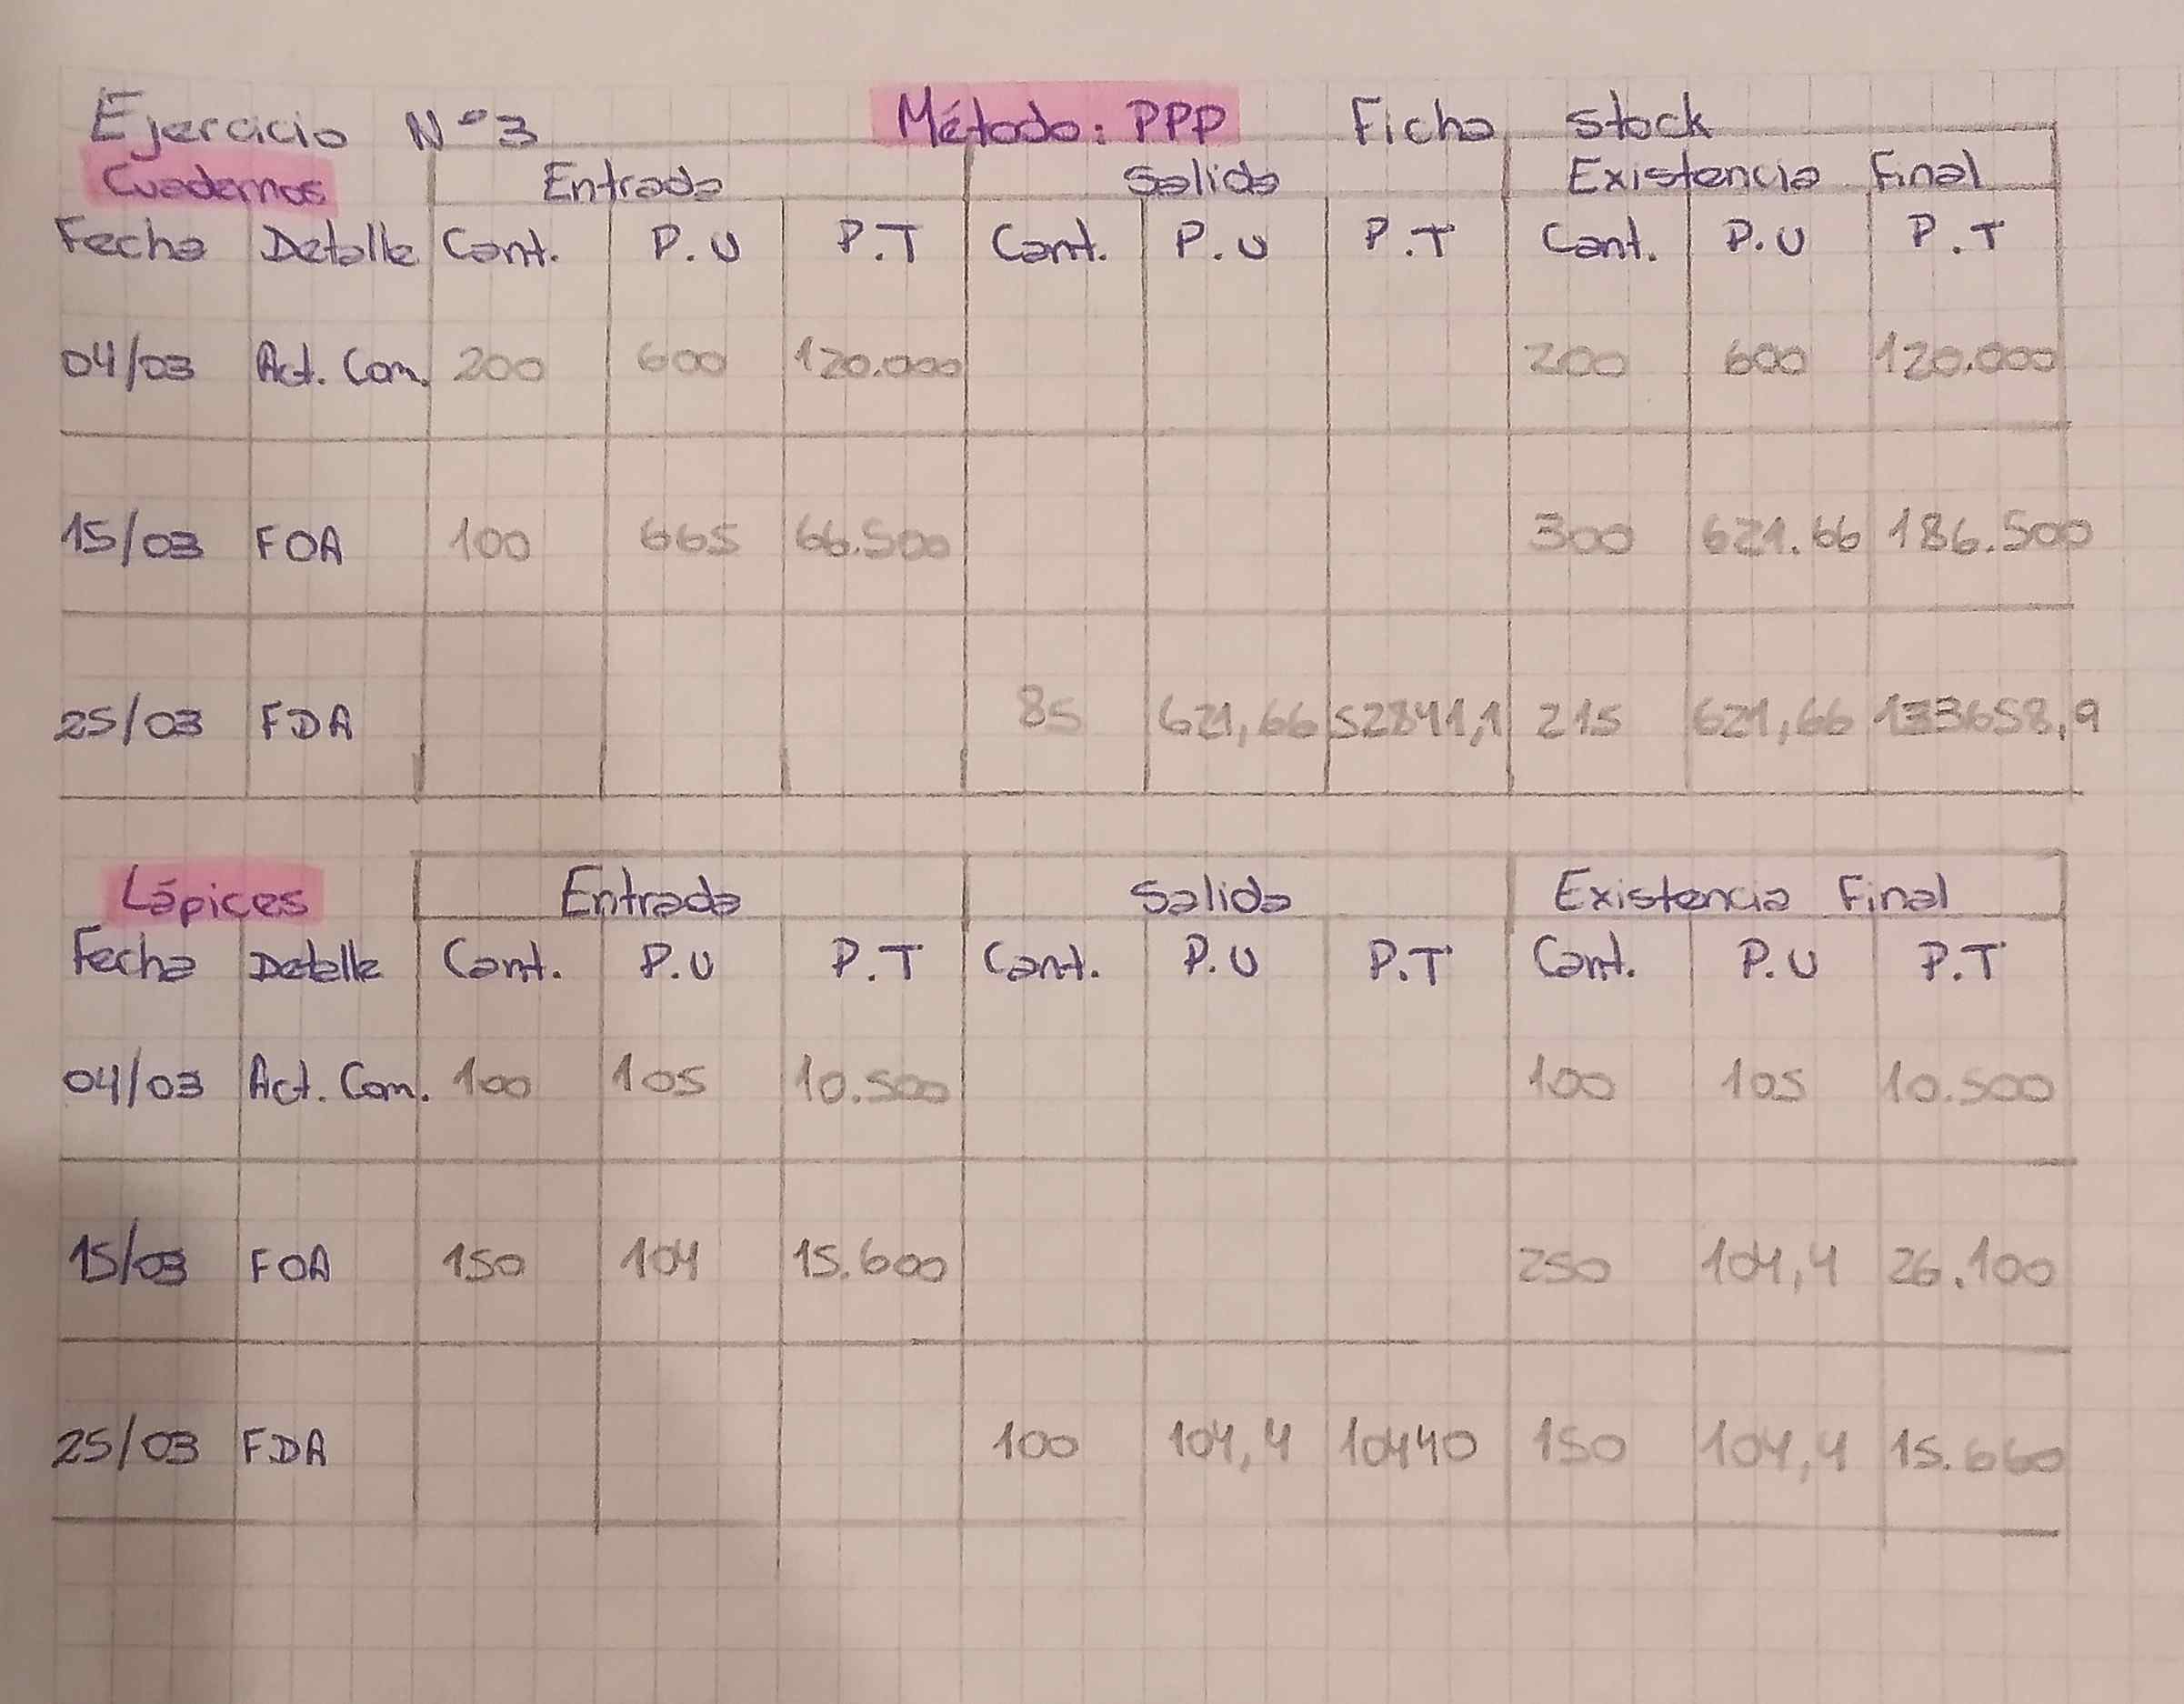 Ejercicio N°3 Método: PPP Ficha stock
Cuadernos Entrada Salida Existencia Final
Fecha Detalle Cant. P.U P.T Cant. P.U P.T Cant. P.U P.T
04/03 Act. Com. 200 600 120.000 200 600 120.000
15/03 FOA 100 665 66.500 300 621.66 186.500
25/03 FDA 85 621,66 52841,1 215 621,66 133658,9
Lápices Entrada Salida Existencia Final
Fecha Detalle Cant. P.U P.T Cant. P.U P.T Cant. P.U P.T
04/03 Act. Com. 100 105 10.500 100 105 10.500
15/03 FOA 150 104 15.600 250 104,4 26.100
25/03 FDA 100 104,4 10440 150 104,4 15.660